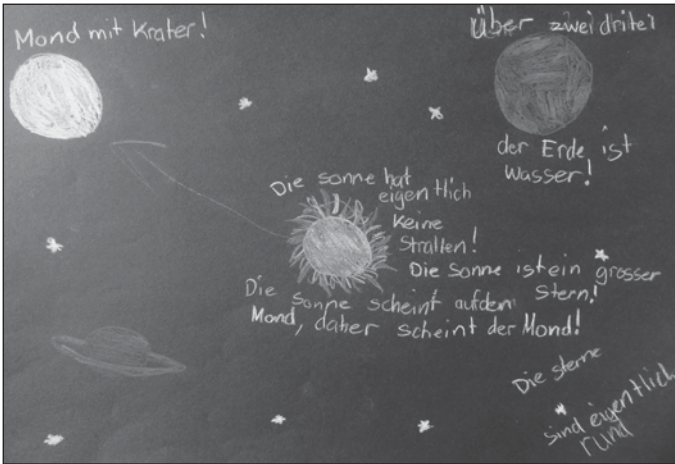 Mond mit Krater!
Über zwei dritel
der Erde ist
Wasser!
Die sonne hat
eigentlich
Keine
Strallen!
Die Sonne ist ein grosser
Stern!
Die sonne scheint auf den
Mond, daher scheint der Mond!
Die sterne
sind eigentlich
rund